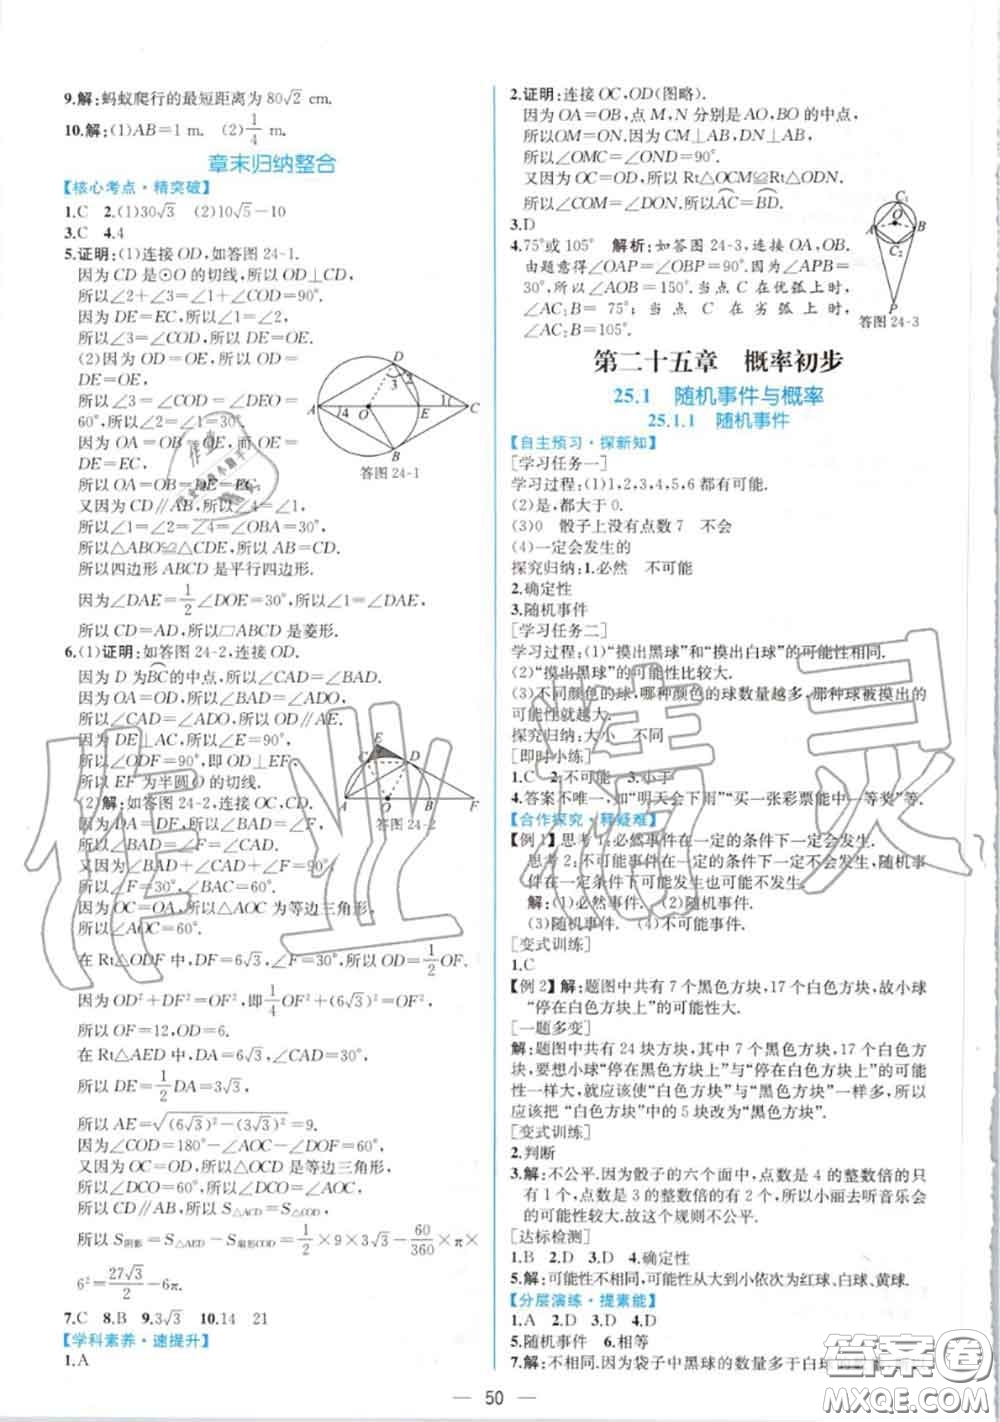 9.解:蚂蚁爬行的最短距离为80√2 cm.
10.解:(1)AB=1 m. (2)1/4 m.
章末归纳整合
【核心考点·精突破】
1.C 2.(1)30√3 (2)10√5-10
3.C 4.4
5.证明:(1)连接OD,如答图24-1.
因为CD是⊙O的切线,所以OD⊥CD,
所以∠2+∠3=∠1+∠COD=90°.
因为DE=EC,所以∠1=∠2,
所以∠3=∠COD,所以DE=OE.
(2)因为OD=OE,所以OD=
DE=OE,
所以∠3=∠COD=∠DEO=
60°,所以∠2=∠1=30°.
因为OA=OB=OE,而OE=
DE=EC,
所以OA=OB=DE=EC.
又因为CD∥AB,所以∠4=∠1,
所以∠2=∠1=∠4=∠OBA=30°,
所以△ABO≌△CDE,所以AB=CD.
所以四边形ABCD是平行四边形.
因为∠DAE=1/2∠DOE=30°,所以∠1=∠DAE,
所以CD=AD,所以□ABCD是菱形.
答图24-1
6.(1)证明:如答图24-2,连接OD.
因为D为BC的中点,所以∠CAD=∠BAD.
因为OA=OD,所以∠BAD=∠ADO,
所以∠CAD=∠ADO,所以OD∥AE.
因为DE⊥AC,所以∠E=90°,
所以∠ODF=90°,即OD⊥EF,
所以EF为半圆O的切线.
(2)解:如答图24-2,连接OC,CD.
因为DA=DF,所以∠BAD=∠F,
所以∠BAD=∠F=∠CAD.
又因为∠BAD+∠CAD+∠F=90°,
所以∠F=30°,∠BAC=60°.
因为OC=OA,所以△AOC为等边三角形,
所以∠AOC=60°.
在Rt△ODF中,DF=6√3,∠F=30°,所以OD=1/2OF.
因为OD²+DF²=OF²,即1/4OF²+(6√3)²=OF²,
所以OF=12,OD=6.
在Rt△AED中,DA=6√3,∠CAD=30°,
所以DE=1/2DA=3√3,
所以AE=√((6√3)²-(3√3)²)=9.
因为∠COD=180°-∠AOC-∠DOF=60°,
又因为OC=OD,所以△OCD是等边三角形,
所以∠DCO=60°,所以∠DCO=∠AOC,
所以CD∥AB,所以S△ACD=S△COD,
所以S阴影=S△AED-S扇形COD=1/2×9×3√3-60/360×π×
6²=27√3/2-6π.
答图24-2
7.C 8.B 9.3√3 10.14 21
【学科素养·速提升】
1.A
2.证明:连接OC,OD(图略).
因为OA=OB,点M,N分别是AO,BO的中点,
所以OM=ON.因为CM⊥AB,DN⊥AB,
所以∠OMC=∠OND=90°.
因为OC=OD,所以Rt△OCM≌Rt△ODN,
所以∠AOC=∠BOD,所以AC=BD.
3.D
4.75°或105° 解析:如答图24-3,连接OA,OB.
由题意得∠OAP=∠OBP=90°.因为∠APB=
30°,所以∠AOB=150°.当点C在优弧上时,
∠AC₁B=75°;当点C在劣弧上时,
∠AC₂B=105°.
答图24-3
第二十五章 概率初步
25.1 随机事件与概率
25.1.1 随机事件
【自主预习·探新知】
[学习任务一]
学习过程:(1)1,2,3,4,5,6都有可能.
(2)是,都大于0.
(3)0 骰子上没有点数7 不会
(4)一定会发生的
探究归纳:1.必然 不可能
2.确定性
3.随机事件
[学习任务二]
学习过程:(1)“摸出黑球”和“摸出白球”的可能性相同.
(2)“摸出黑球”的可能性比较大.
(3)不同颜色的球,哪种颜色的球数量越多,那种球被摸出的
可能性就越大.
探究归纳:大小 不同
[即时小练]
1.C 2.不可能 3.小于
4.答案不唯一,如“明天会下雨”“买一张彩票能中一等奖”等.
【合作探究·释疑难】
【例1】思考1:必然事件在一定的条件下一定会发生.
思考2:不可能事件在一定的条件下一定不会发生,随机事
件在一定条件下可能发生也可能不发生.
解:(1)必然事件. (2)随机事件.
(3)随机事件. (4)不可能事件.
[变式训练]
1.C
【例2】解:题图中共有7个黑色方块,17个白色方块,故小球
“停在白色方块上”的可能性大.
[一题多变]
解:题图中共有24块方块,其中7个黑色方块,17个白色方
块,要想小球“停在黑色方块上”与“停在白色方块上”的可能
性一样大,就应该使“白色方块”与“黑色方块”一样多,所以
应该把“白色方块”中的5块改为“黑色方块”.
[变式训练]
2.判断
3.解:不公平.因为骰子的六个面中,点数是4的整数倍的只
有1个,点数是3的整数倍的有2个,所以小丽去听音乐会
的可能性较大.故这个规则不公平.
[达标检测]
1.B 2.D 3.D 4.确定性
5.解:可能性不相同,可能性从大到小依次为红球、白球、黄球.
【分层演练·提素能】
1.A 2.D 3.D 4.D
5.随机事件 6.相等
7.解:不相同.因为袋子中黑球的数量多于白球
50
作业精灵
答案圈
MXQE.COM